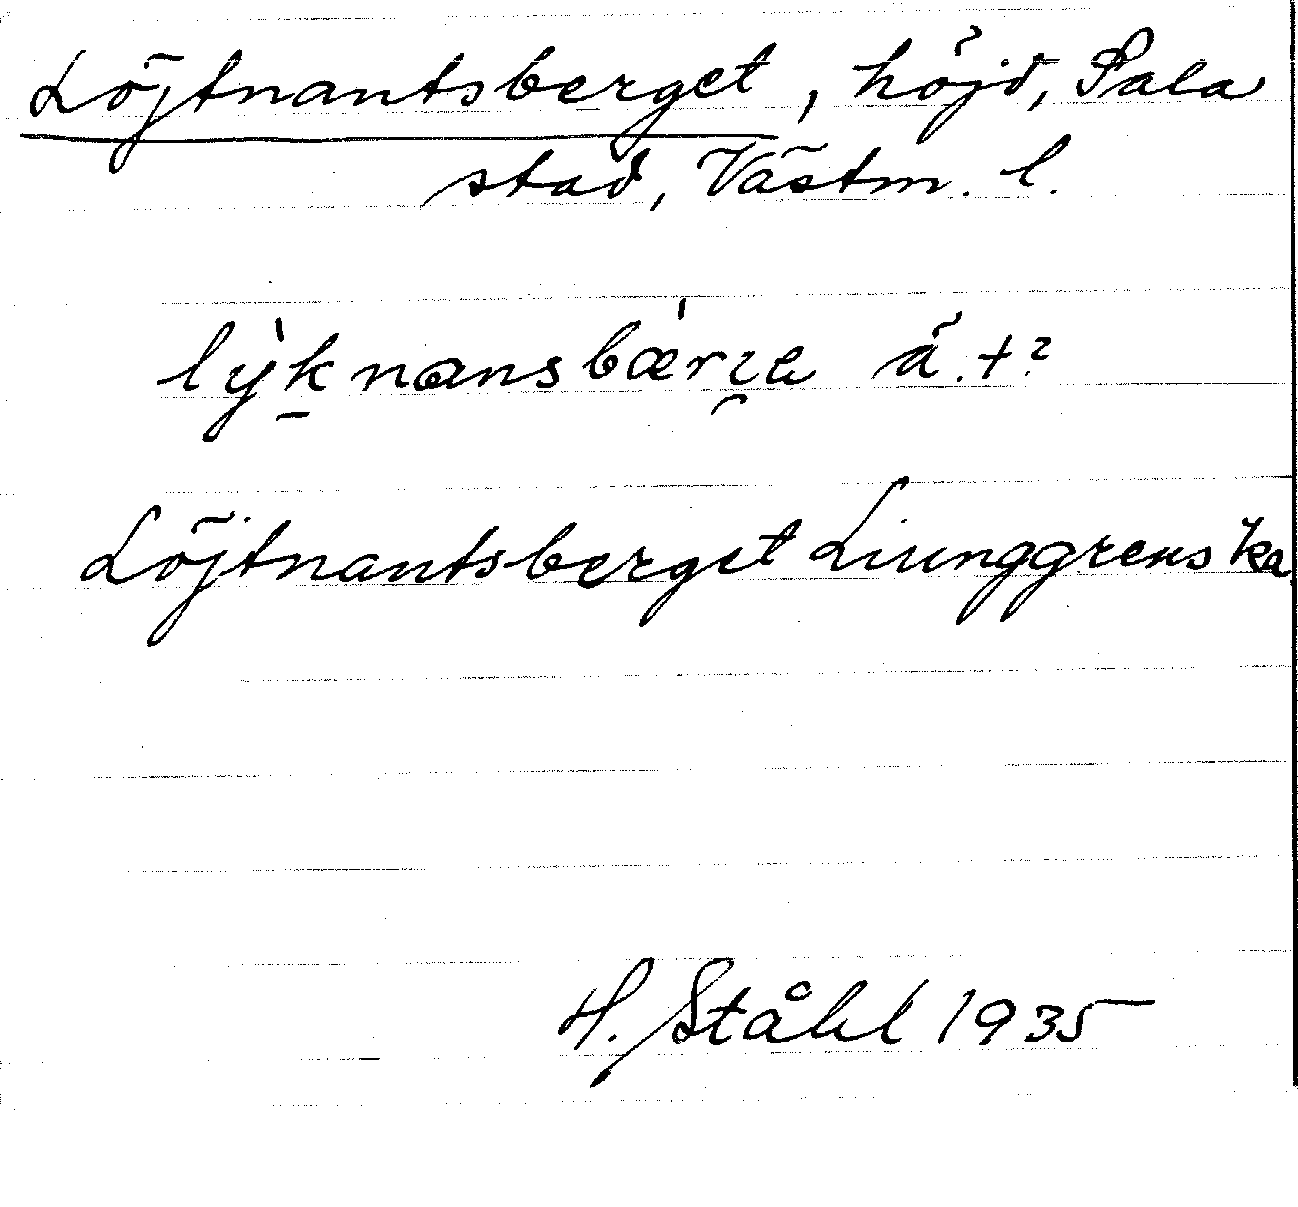 Löjtnantsberget, höjd, Sala
stad, Västm. l.
lỳk̠nansbǽrɪ̯a ä.+?
Löjtnantsberget Liunggrens ka
H. Ståhl 1935